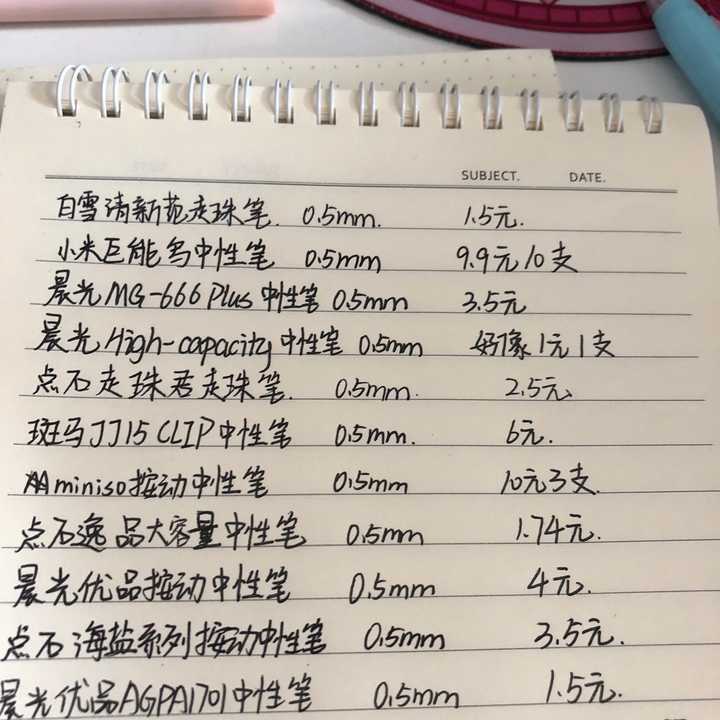 SUBJECT. DATE.
白雪清新苑走珠笔. 0.5mm. 1.5元.
小米巨能写中性笔 0.5mm 9.9元10支
晨光MG-666 Plus 中性笔 0.5mm 3.5元
晨光High-capacity中性笔 0.5mm 好像1元1支
点石走珠君走珠笔. 0.5mm. 2.5元.
斑马JJ15 CLIP中性笔 0.5mm. 6元.
miniso按动中性笔 0.5mm 10元3支.
点石逸品大容量中性笔 0.5mm 1.74元.
晨光优品按动中性笔 0.5mm 4元.
点石海盐系列按动中性笔 0.5mm 3.5元.
晨光优品AGPA1701中性笔 0.5mm 1.5元.